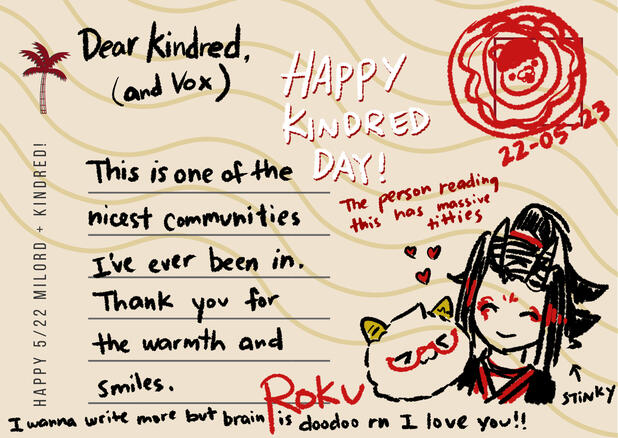 Dear Kindred,
(and Vox)
HAPPY
KINDRED
DAY!
22-05-23
This is one of the
nicest communities
I've ever been in.
Thank you for
the warmth and
smiles.
The person reading
this has massive
titties
HAPPY 5/22 MILORD + KINDRED!
STINKY
Roku
I wanna write more but brain is doodoo rn I love you!!